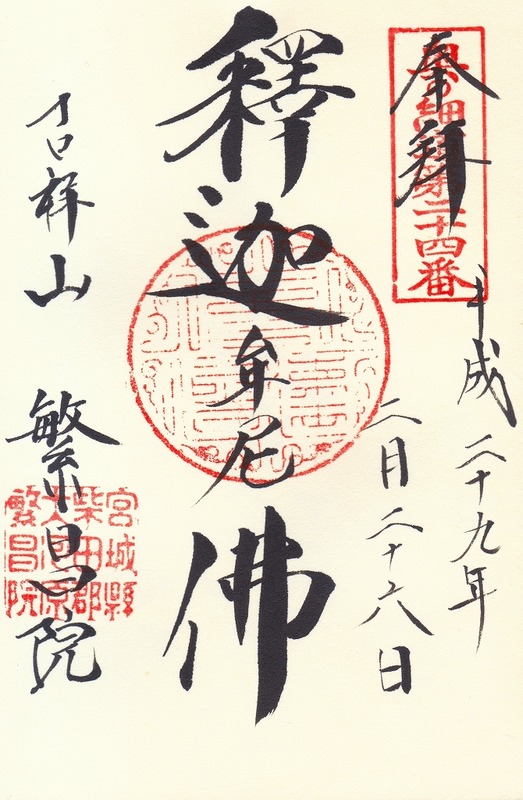 奉拝
奥の細道第二十四番
平成二十九年
二月二十六日
釋迦牟尼佛
吉祥山
繁昌院
宮城縣
柴田郡
大河原
繁昌院